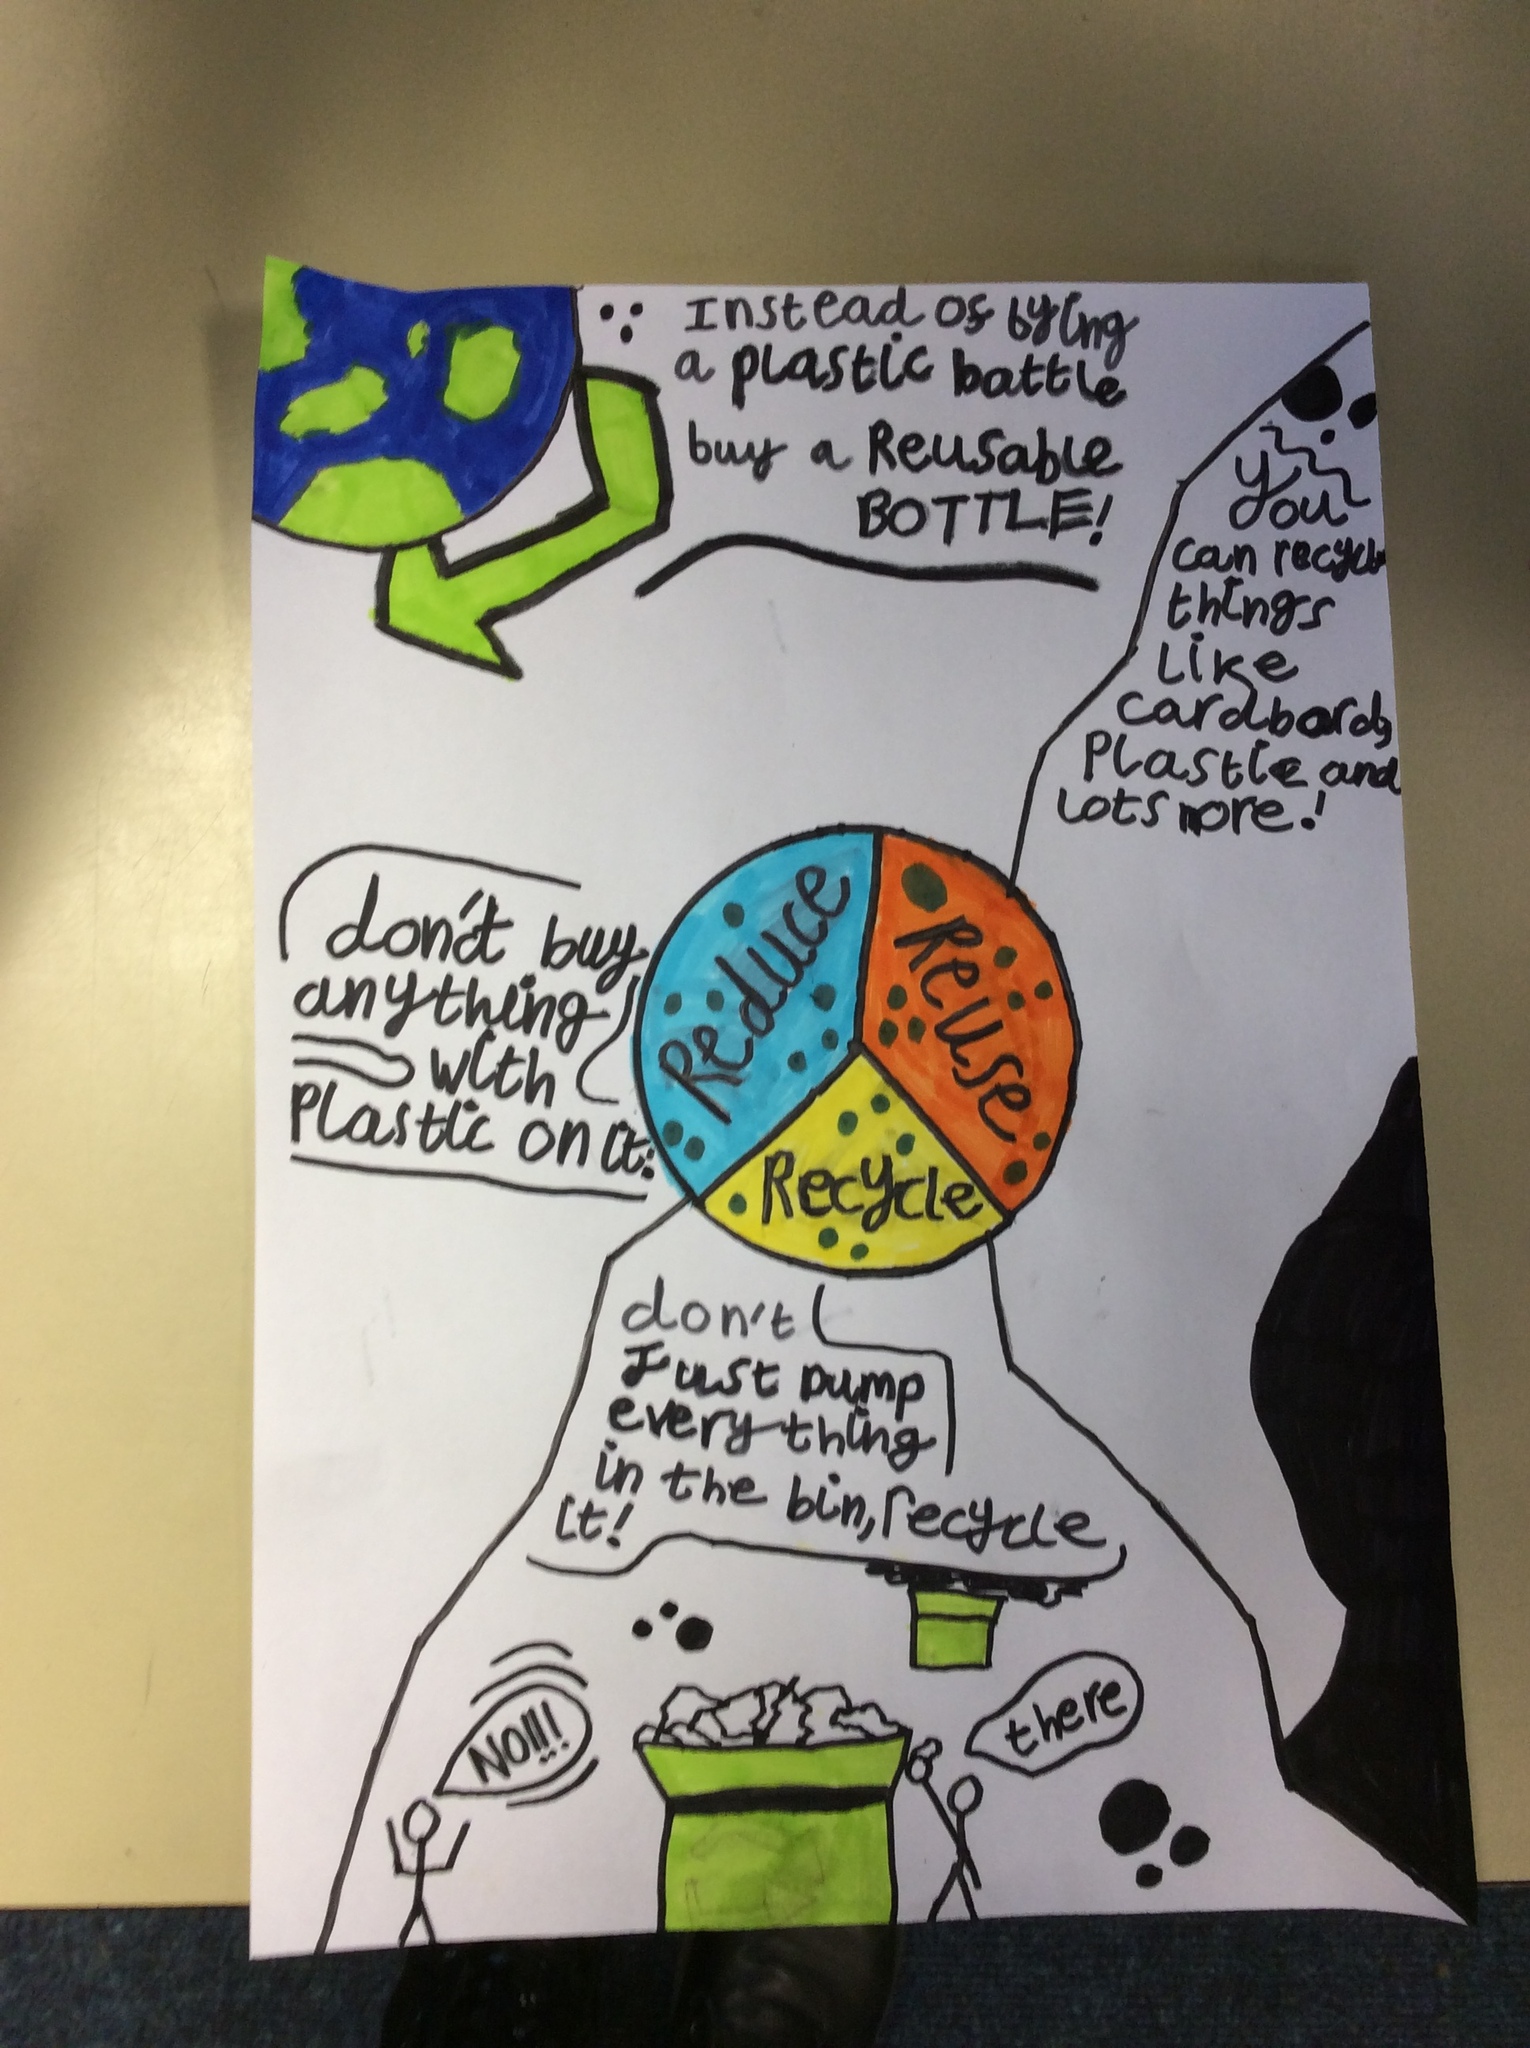 Instead of bying
a plastic battle
buy a Reusable
BOTTLE!
you
can recycle
things
like
cardboard,
Plastic and
lots more!
Reduce
Reuse
Recycle
don't buy
anything
with
Plastic on it.
don't
Just Dump
everything
in the bin, recycle
it!
NO!!!
there